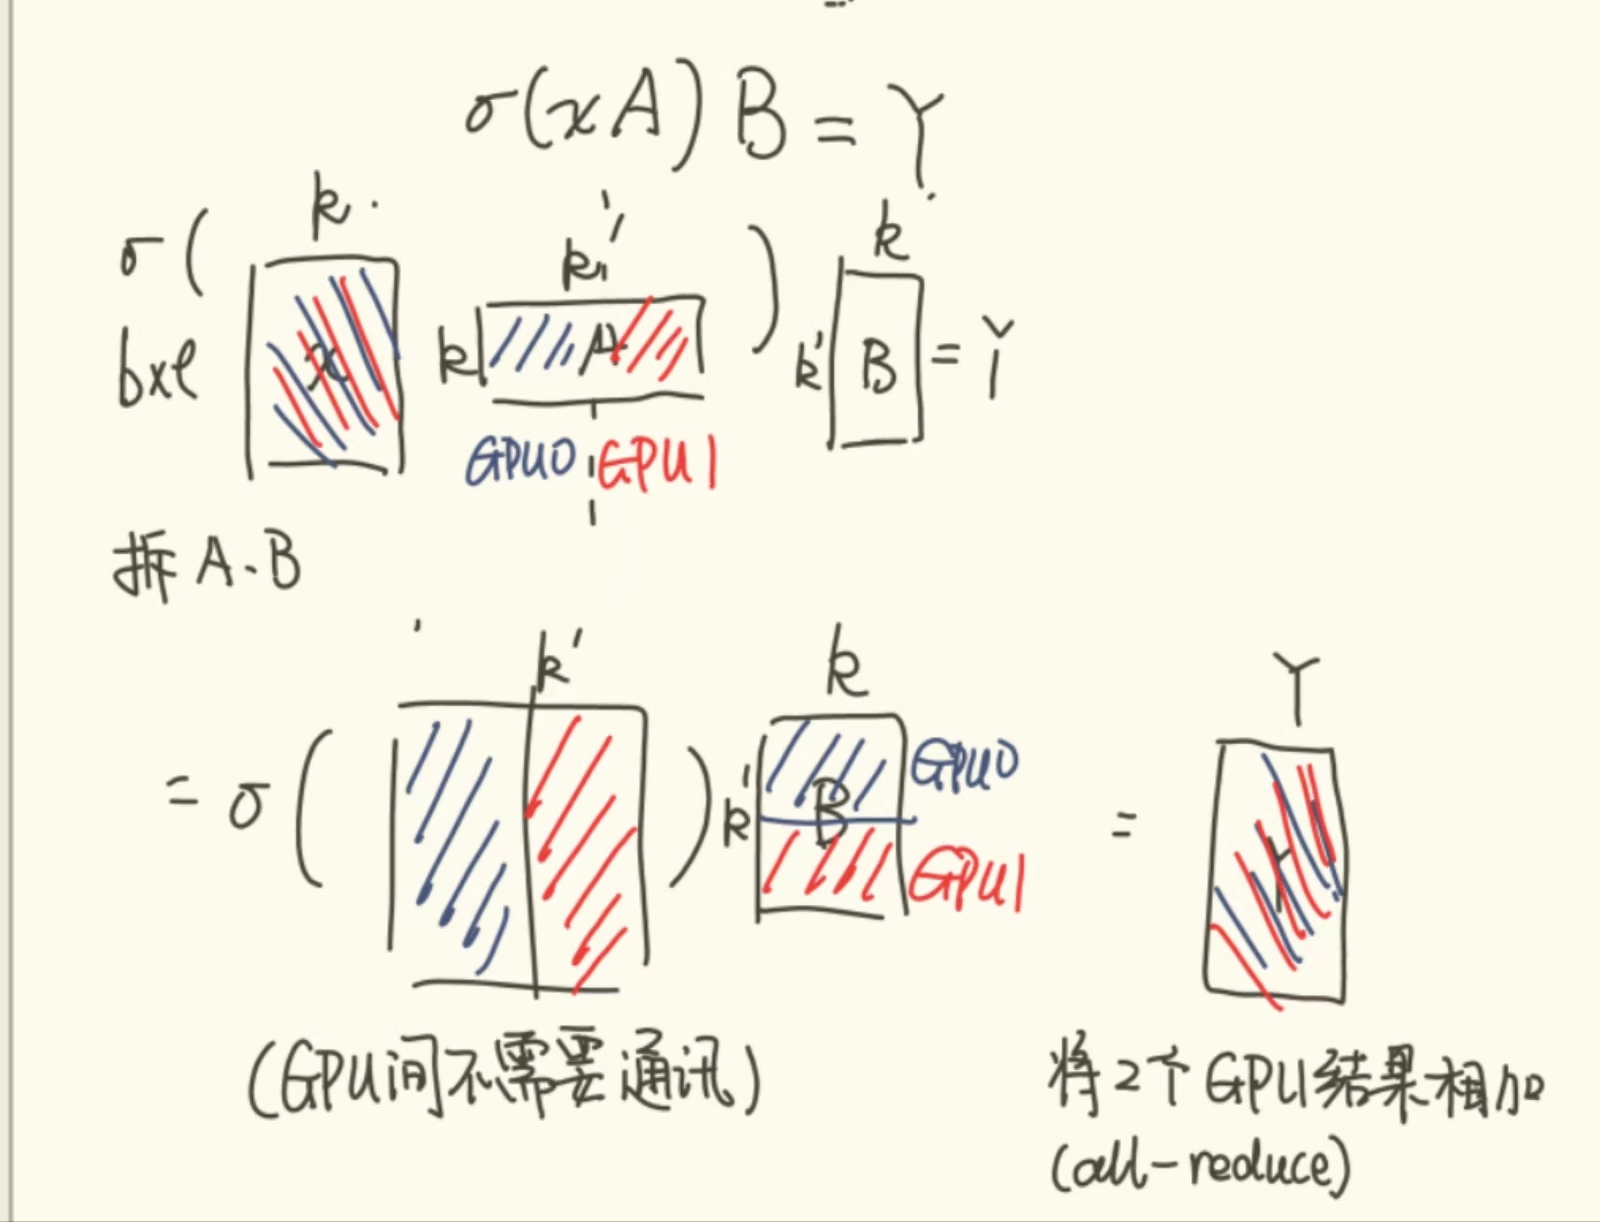 σ(xA)B = Y
σ( k k' ) k
bxl x k A k' B = Y
GPU0 GPU1
拆 A、B
k' k Y
= σ( ) k' B GPU0 = Y
GPU1
(GPU间不需要通讯)
将2个GPU结果相加
(all-reduce)